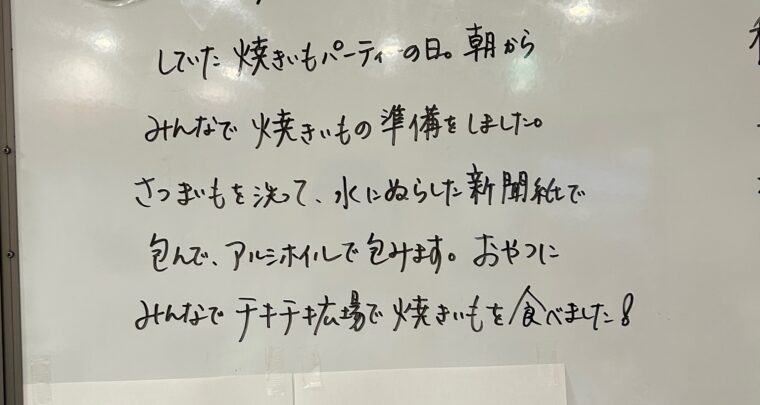 していた 焼きいもパーティーの日。朝から
みんなで 焼きいもの 準備をしました。
さつまいもを洗って、水にぬらした新聞紙で
包んで、アルミホイルで包みます。おやつに
みんなで チキチキ広場で 焼きいもを食べました!